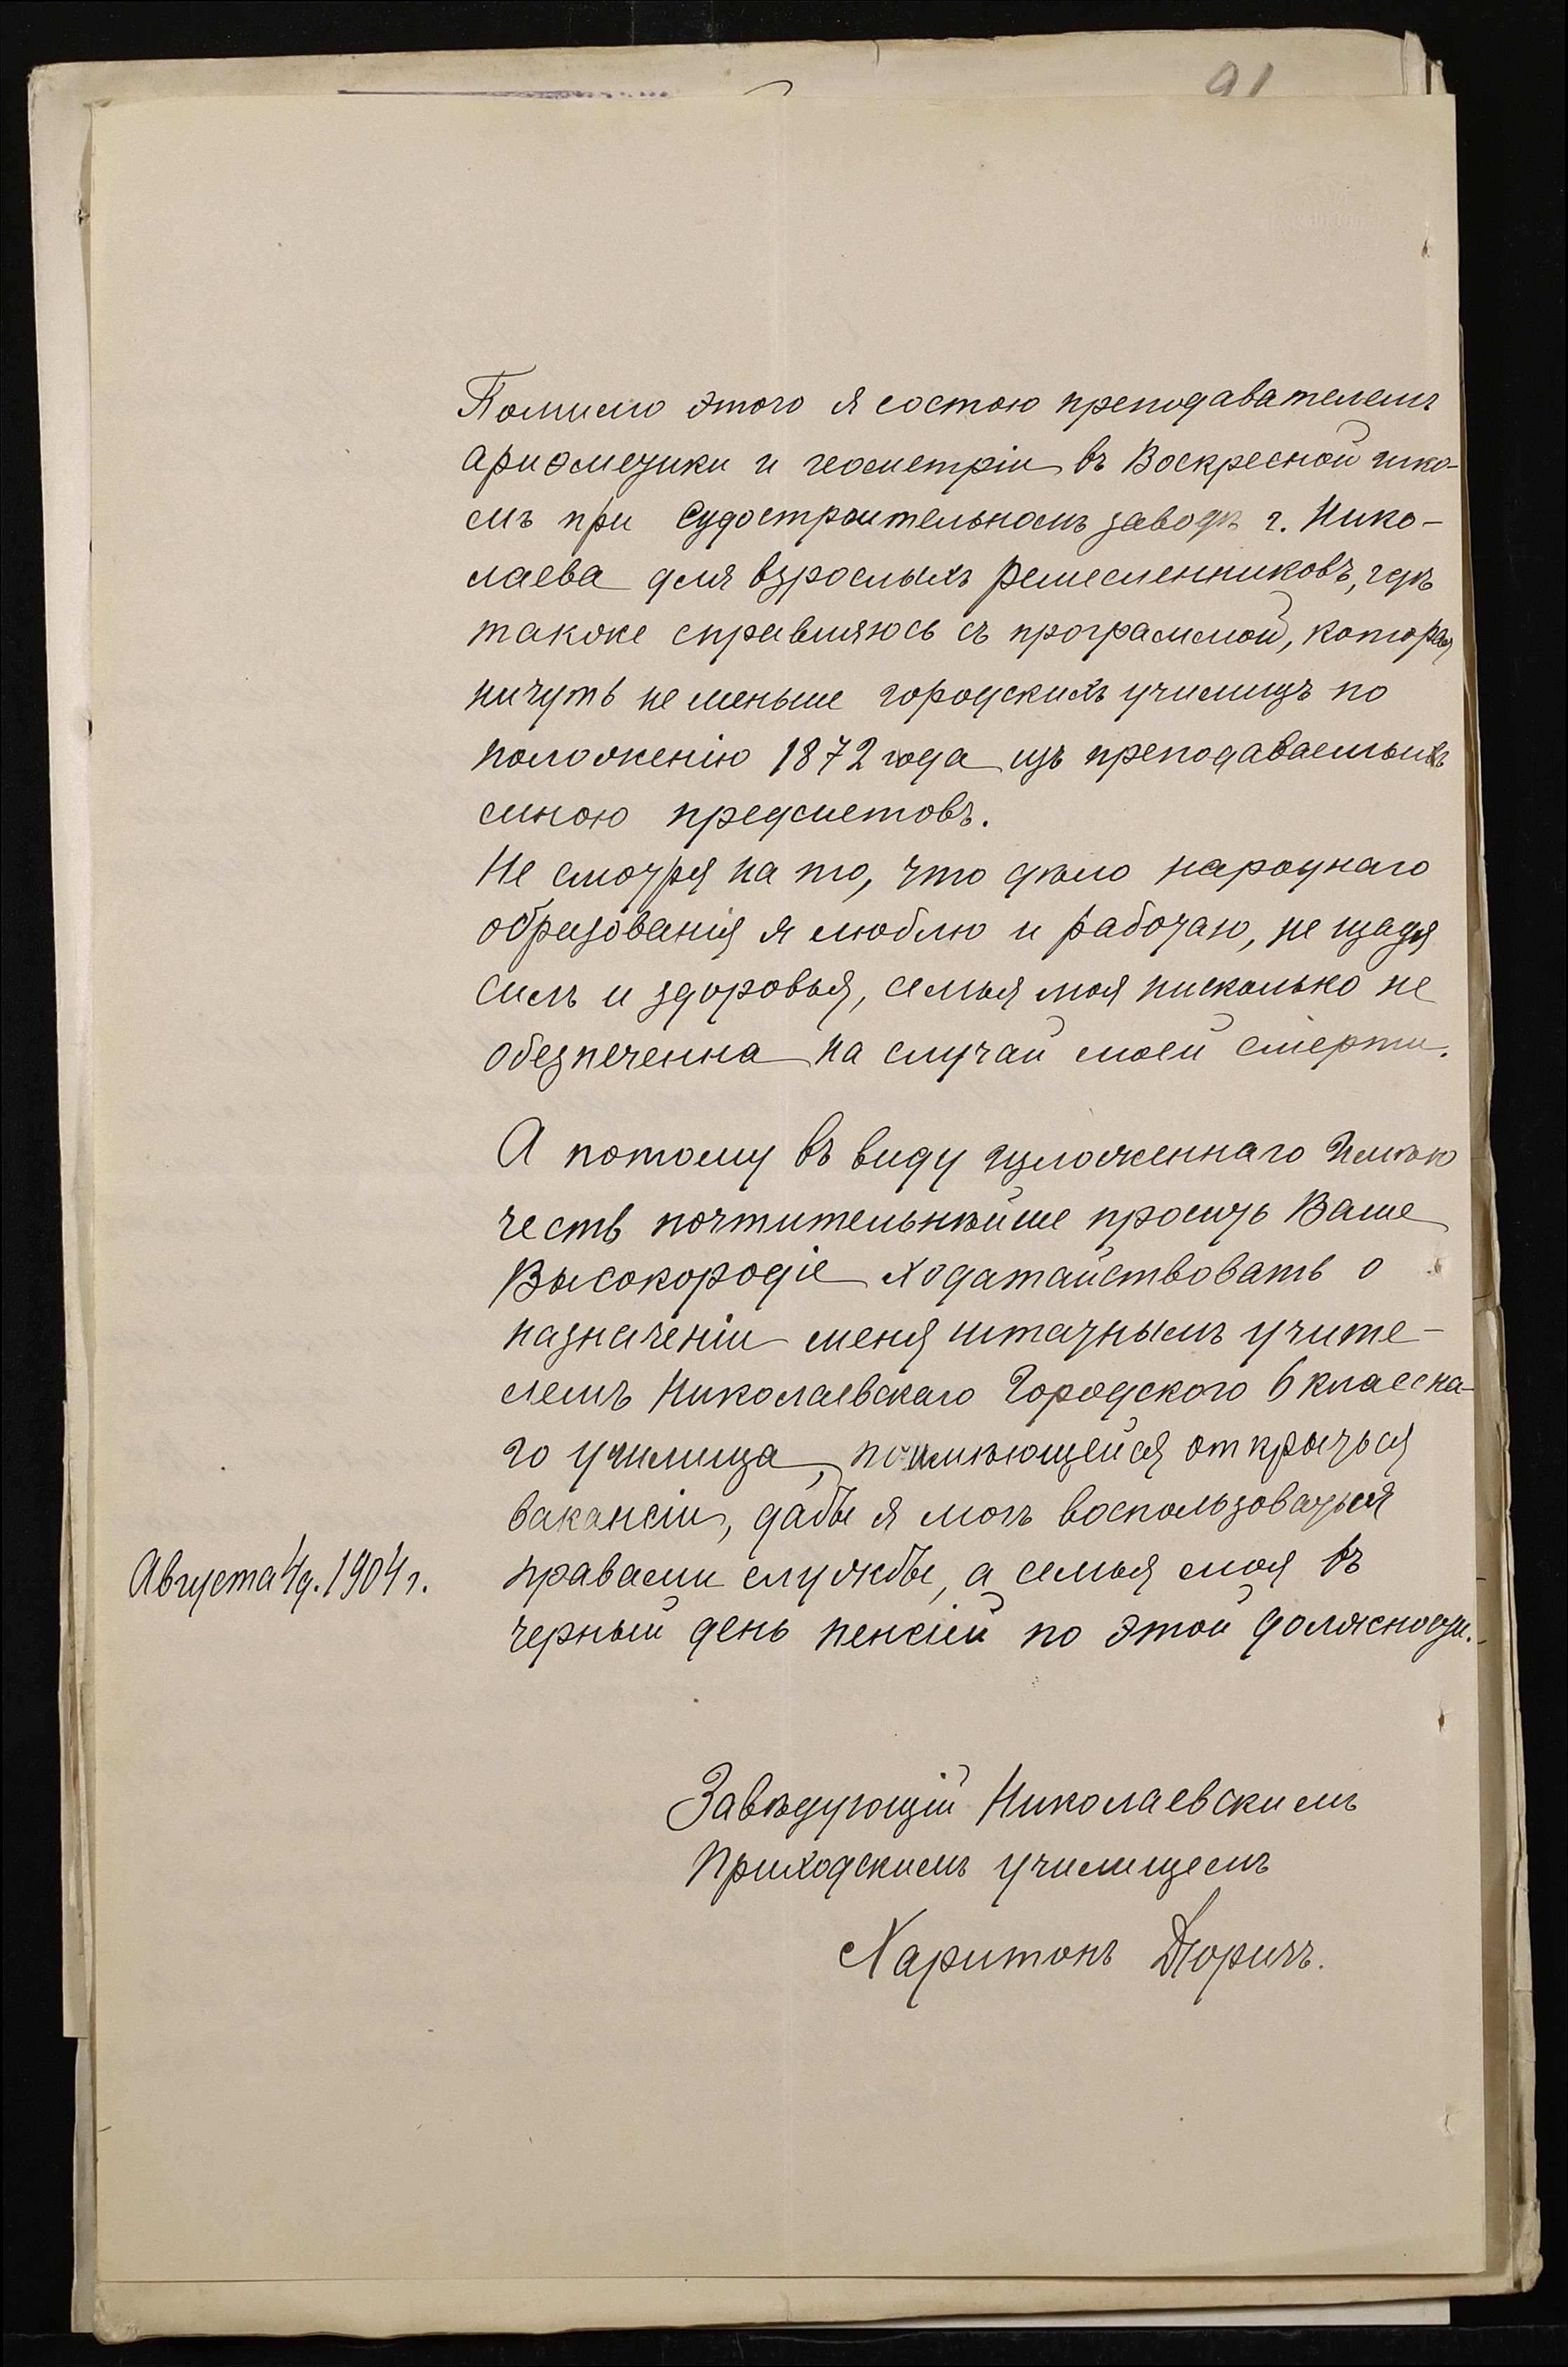 91
Помимо этого я состою преподавателемъ
ариѳметики и геометріи въ Воскресной шко-
лѣ при Судостроительномъ заводѣ г. Нико-
лаева для взрослыхъ ремесленниковъ, гдѣ
также справляюсь съ программой, которая
ничуть не меньше городскихъ училищъ по
положенію 1872 года изъ преподаваемыхъ
мною предметовъ.
Не смотря на то, что дѣло народнаго
образованія я люблю и работаю, не щадя
силъ и здоровья, семья моя нисколько не
обезпеченна на случай моей смерти.
А потому въ виду изложеннаго Имѣю
честь почтительнѣйше просить Ваше
Высокородіе ходатайствовать о
назначеніи меня штатнымъ учите-
лемъ Николаевскаго Городского 6 класснa-
го училища, по имѣющейся открыться
вакансіи, дабы я могъ воспользоваться
Августа 4 д. 1904 г.
правами службы, а семья моя въ
черный день пенсіей по этой должности.
Завѣдующій Николаевскимъ
Приходскимъ училищемъ
Харитонъ Дюричъ.